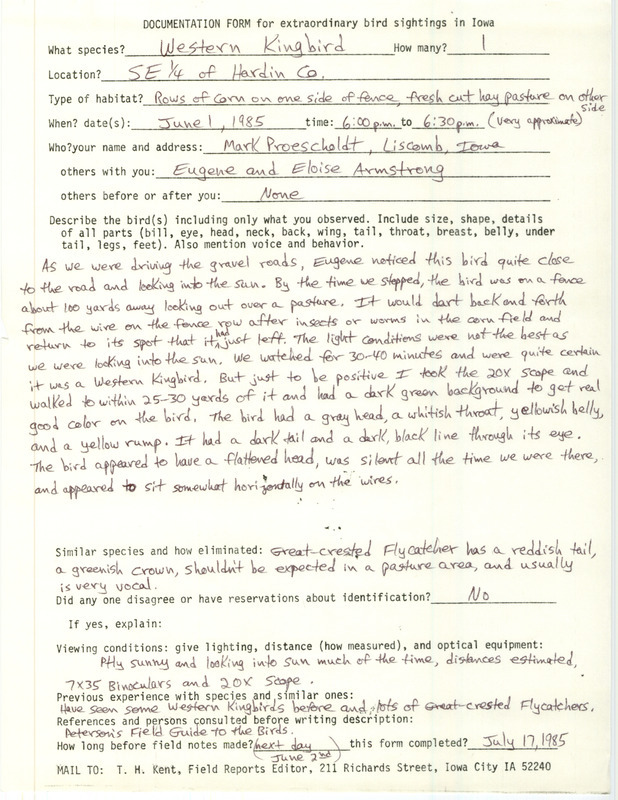 DOCUMENTATION FORM for extraordinary bird sightings in Iowa
What species? Western Kingbird How many? 1
Location? SE 1/4 of Hardin Co.
Type of habitat? Rows of corn on one side of fence, fresh cut hay pasture on other side
When? date(s): June 1, 1985 time: 6:00 p.m. to 6:30 p.m. (very approximate)
Who?your name and address: Mark Proescholdt, Liscomb, Iowa
others with you: Eugene and Eloise Armstrong
others before or after you: None
Describe the bird(s) including only what you observed. Include size, shape, details
of all parts (bill, eye, head, neck, back, wing, tail, throat, breast, belly, under
tail, legs, feet). Also mention voice and behavior.
As we were driving the gravel roads, Eugene noticed this bird quite close
to the road and looking into the sun. By the time we stopped, the bird was on a fence
about 100 yards away looking out over a pasture. It would dart back and forth
from the wire on the fence row after insects or worms in the corn field and
return to its spot that it had just left. The light conditions were not the best as
we were looking into the sun. We watched for 30-40 minutes and were quite certain
it was a Western Kingbird. But just to be positive I took the 20X scope and
walked to within 25-30 yards of it and had a dark green background to get real
good color on the bird. The bird had a gray head, a whitish throat, yellowish belly,
and a yellow rump. It had a dark tail and a dark, black line through its eye.
The bird appeared to have a flattened head, was silent all the time we were there,
and appeared to sit somewhat horizontally on the wires.
Similar species and how eliminated: Great-crested Flycatcher has a reddish tail,
a greenish crown, shouldn't be expected in a pasture area, and usually
is very vocal.
Did any one disagree or have reservations about identification? No
If yes, explain:
Viewing conditions: give lighting, distance (how measured), and optical equipment:
Ptly sunny and looking into sun much of the time, distances estimated,
7X35 Binoculars and 20X scope.
Previous experience with species and similar ones:
Have seen some Western Kingbirds before and lots of Great-crested Flycatchers.
References and persons consulted before writing description:
Peterson's Field Guide to the Birds.
How long before field notes made? next day (June 2nd) this form completed? July 17, 1985
MAIL TO: T. H. Kent, Field Reports Editor, 211 Richards Street, Iowa City IA 52240